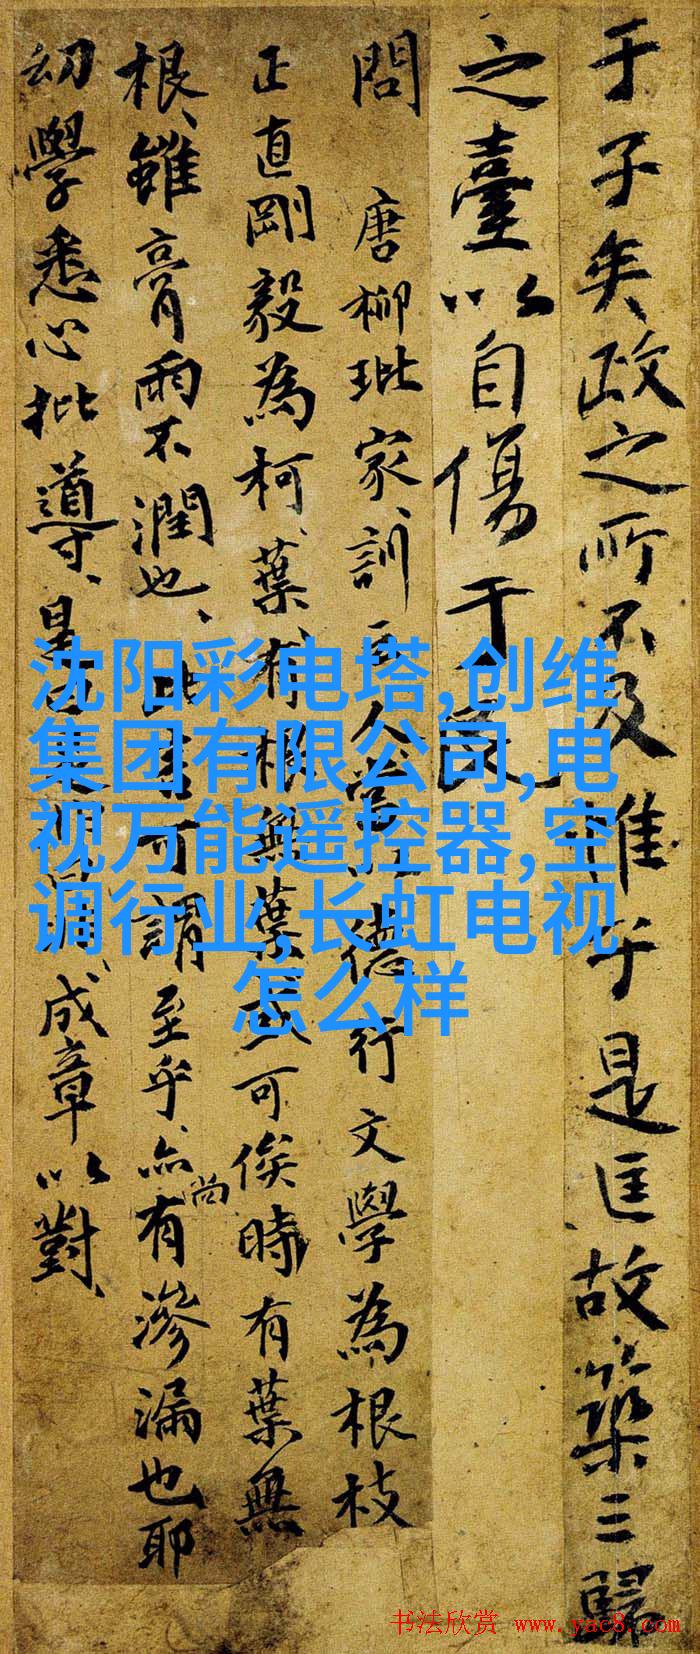 于子矣政之所不及惟于是匡故築三歸
之臺以自傷于民
問 唐柳玭家訓 人 以德行文學為根枝
正直剛毅為柯葉有根無葉或可俟時有葉無
根雖膏雨不潤也 可謂至乎亦尚有滲漏也耶
幼學悉心批導 成章以對
沈阳彩电塔,创维
集团有限公司,电
视万能遥控器,空
调行业,长虹电视
怎么样
书法欣赏 www.yac8.com